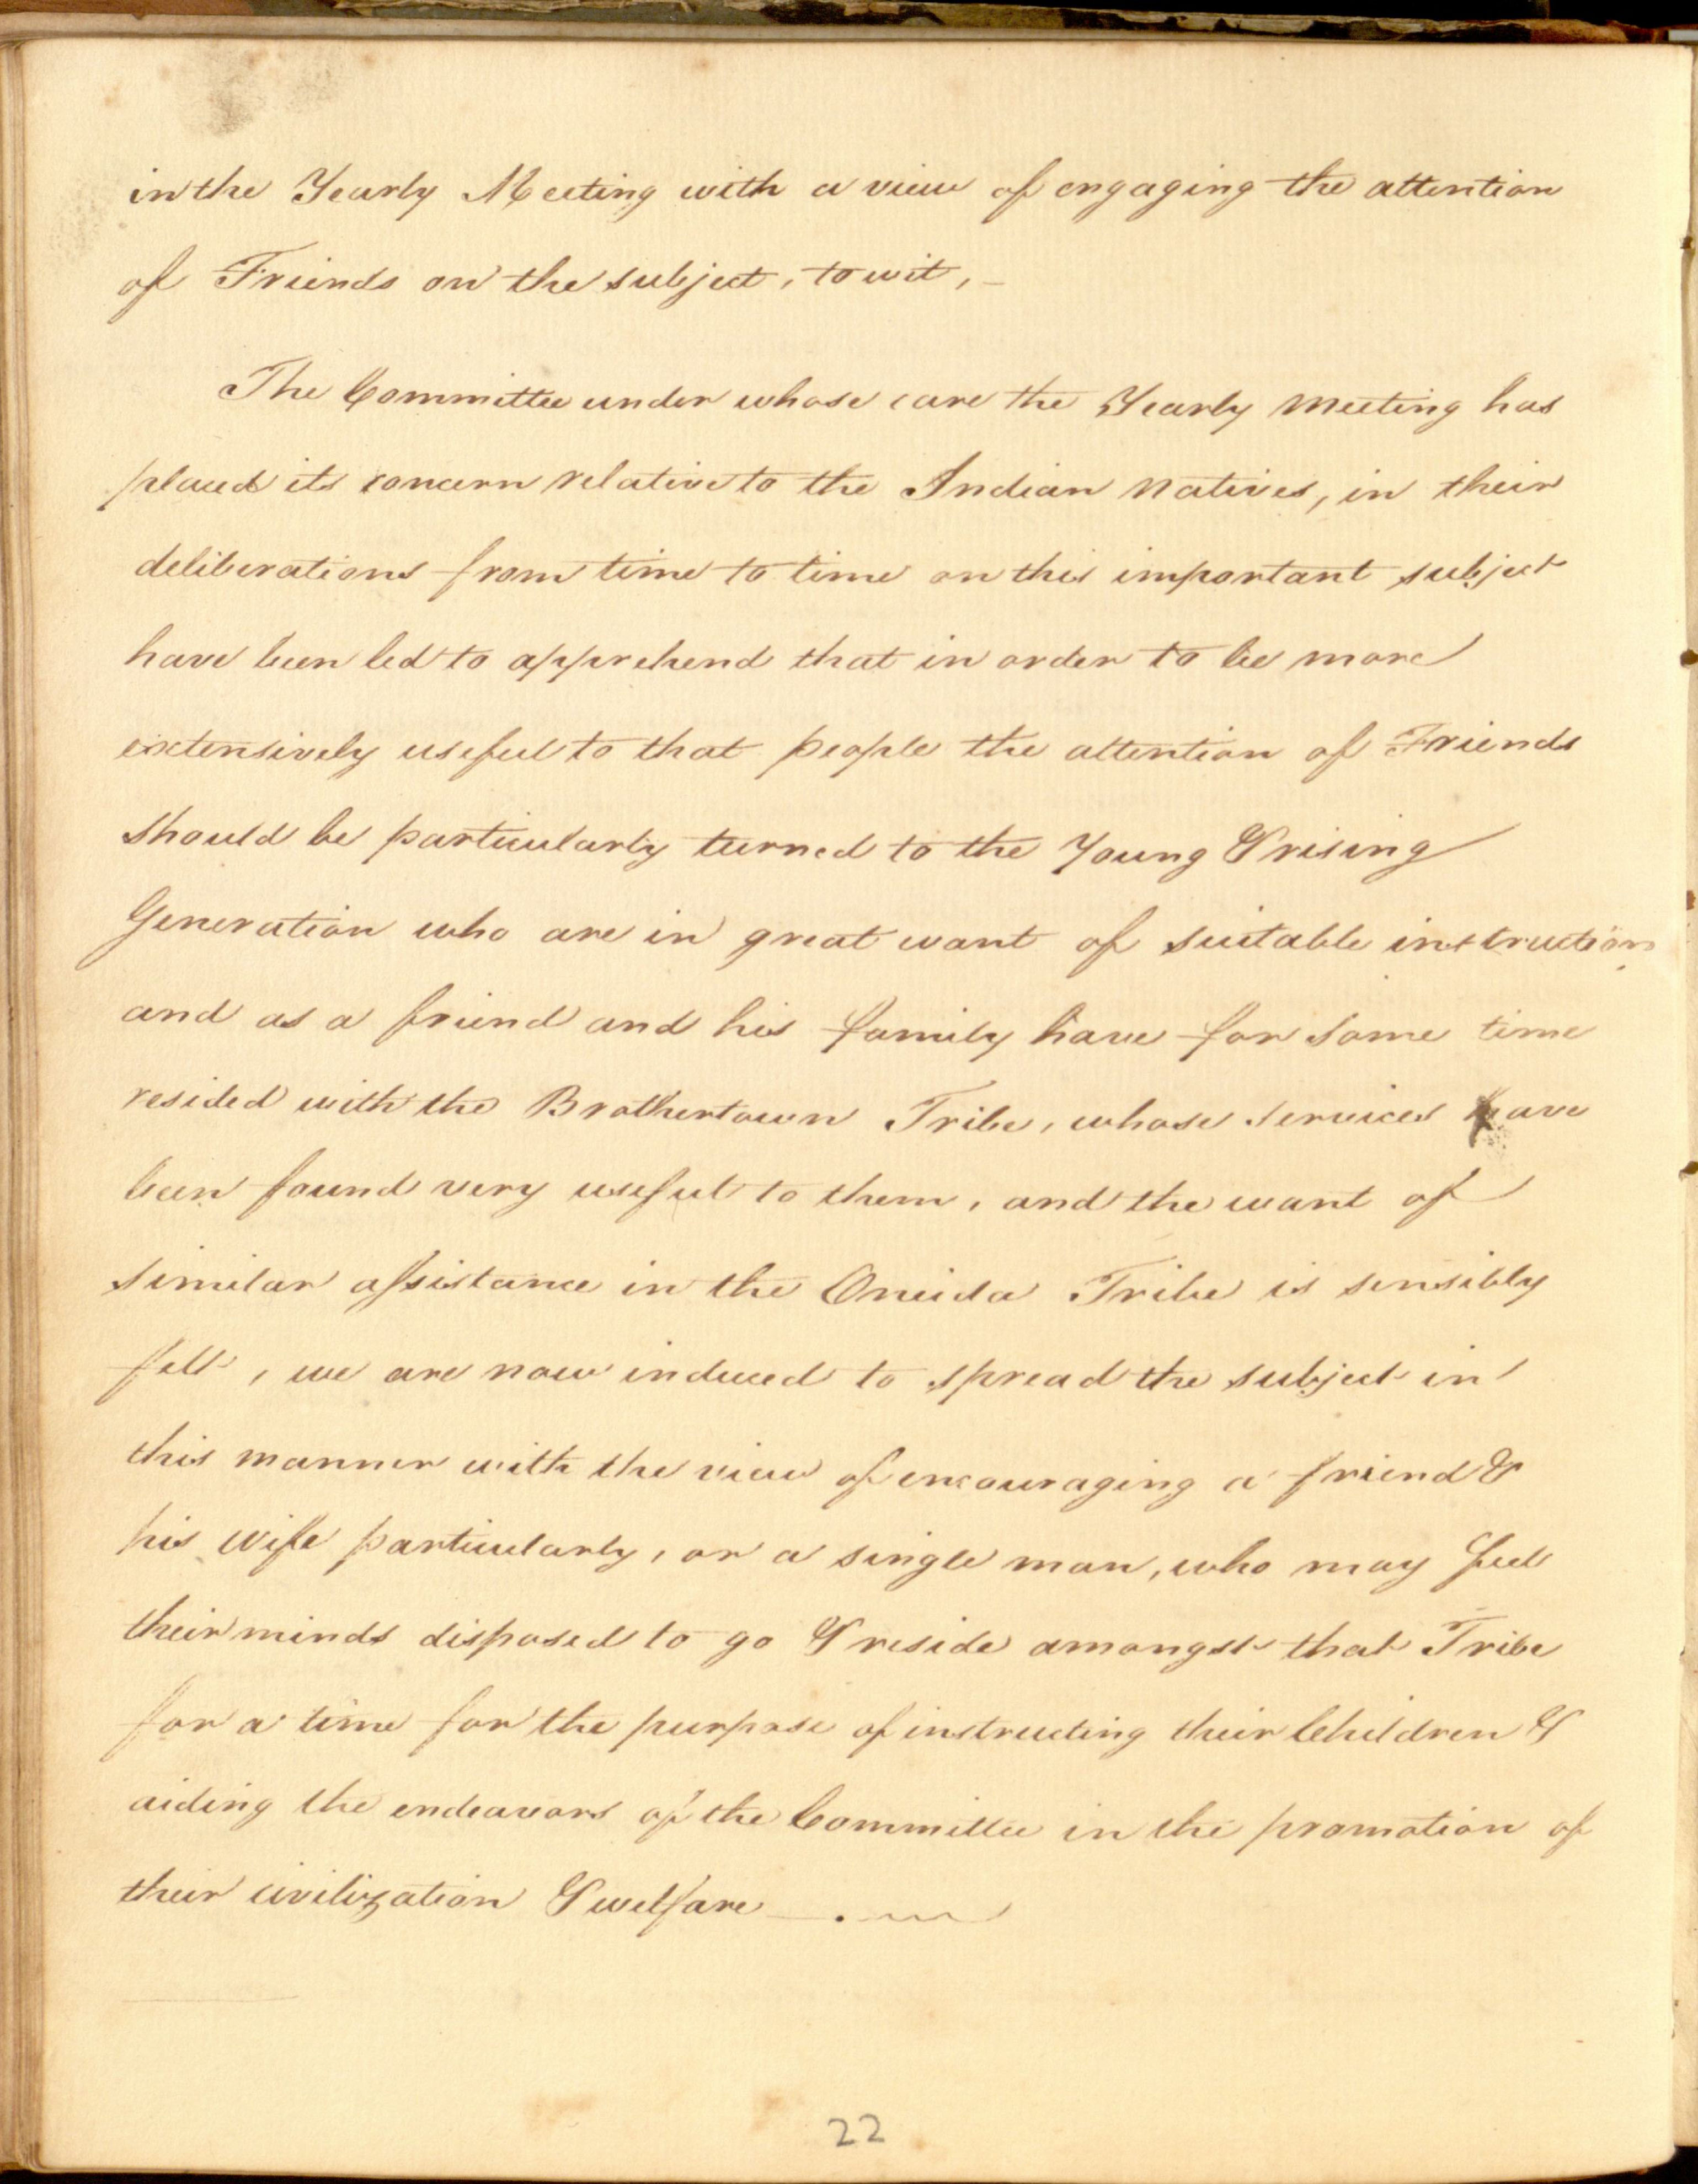 in the Yearly Meeting with a view of engaging the attention
of Friends on the subject, to wit, –
The Committee under whose care the Yearly Meeting has
placed its concern relative to the Indian Natives, in their
deliberations from time to time on this important subject
have been led to apprehend that in order to be more
extensively useful to that people the attention of Friends
should be particularly turned to the Young & rising
Generation who are in great want of suitable instruction
and as a friend and his family have for some time
resided with the Brothertown Tribe, whose services have
been found very useful to them, and the want of
similar assistance in the Oneida Tribe is sensibly
felt, we are now induced to spread the subject in
this manner with the view of encouraging a friend &
his wife particularly, or a single man, who may feel
their minds disposed to go & reside amongst that Tribe
for a time for the purpose of instructing their Children &
aiding the endeavors of the Committee in the promotion of
their civilization & welfare —.
22